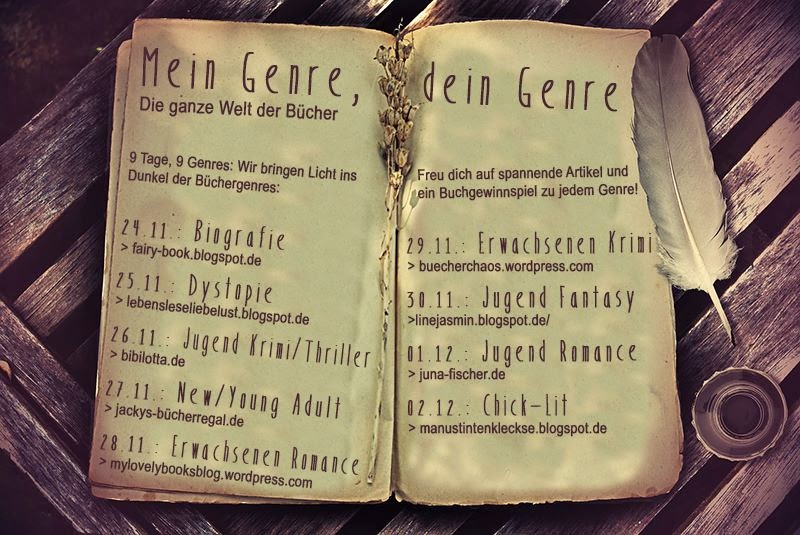 Mein Genre,
Die ganze Welt der Bücher
9 Tage, 9 Genres: Wir bringen Licht ins
Dunkel der Büchergenres:
24.11.: Biografie
> fairy-book.blogspot.de
25.11.: Dystopie
> lebensleseliebelust.blogspot.de
26.11.: Jugend Krimi/Thriller
> bibilotta.de
27.11.: New/Young Adult
> jackys-bücherregal.de
28.11.: Erwachsenen Romance
> mylovelybooksblog.wordpress.com
dein Genre
Freu dich auf spannende Artikel und
ein Buchgewinnspiel zu jedem Genre!
29.11.: Erwachsenen Krimi
> buecherchaos.wordpress.com
30.11.: Jugend Fantasy
>linejasmin.blogspot.de/
01.12.: Jugend Romance
> juna-fischer.de
02.12.: Chick-Lit
> manustintenkleckse.blogspot.de